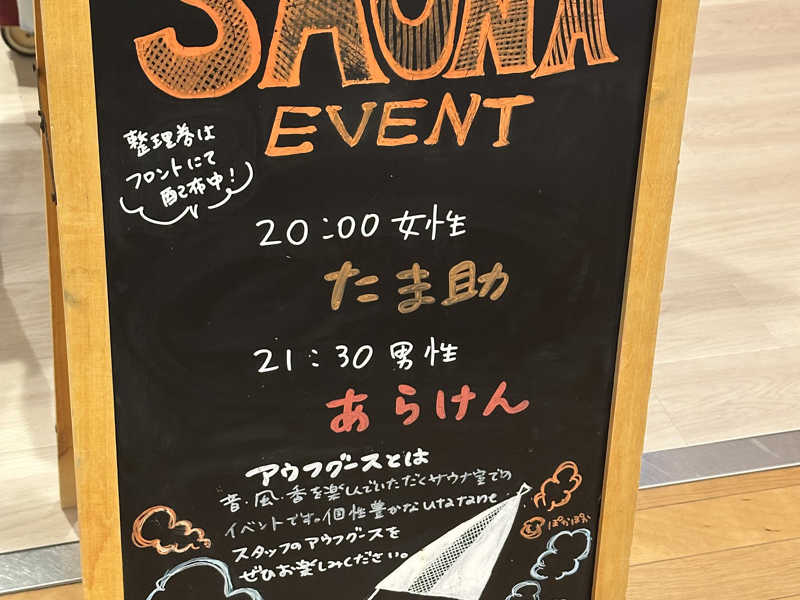 SAUNA
EVENT
整理券は
フロントにて
配布中!
20:00 女性
たま助
21:30 男性
あらけん
アウフグースとは
音・風・香を楽しんでいただくサウナ室での
イベントです。個性豊かなutatane
スタッフのアウフグースを
ぜひお楽しみください。
ぽかぽか